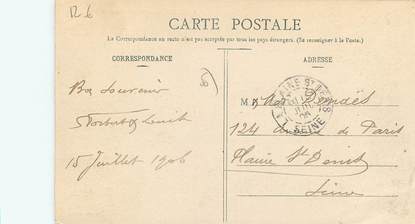 R. 6
CARTE POSTALE
La Correspondance au recto n'est pas acceptée par tous les pays étrangers. (Se renseigner à la Poste.)
CORRESPONDANCE
ADRESSE
Bon Souvenir
15 Juillet 1906
M
124 de Paris
Plaine St Denis
Seine
LA PLAINE ST DENIS
SEINE